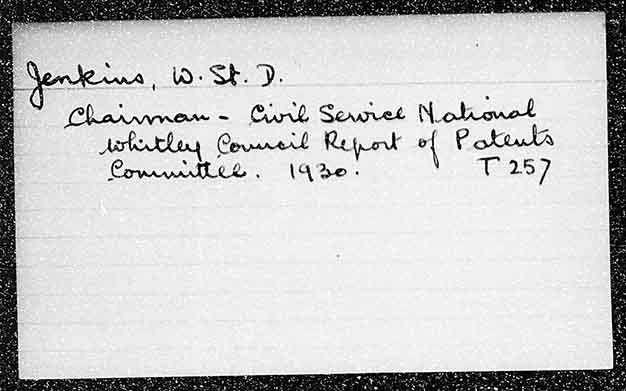 Jenkins, W. St. D.
Chairman - Civil Service National
Whitley Council Report of Patents
Committee. 1930. T 257